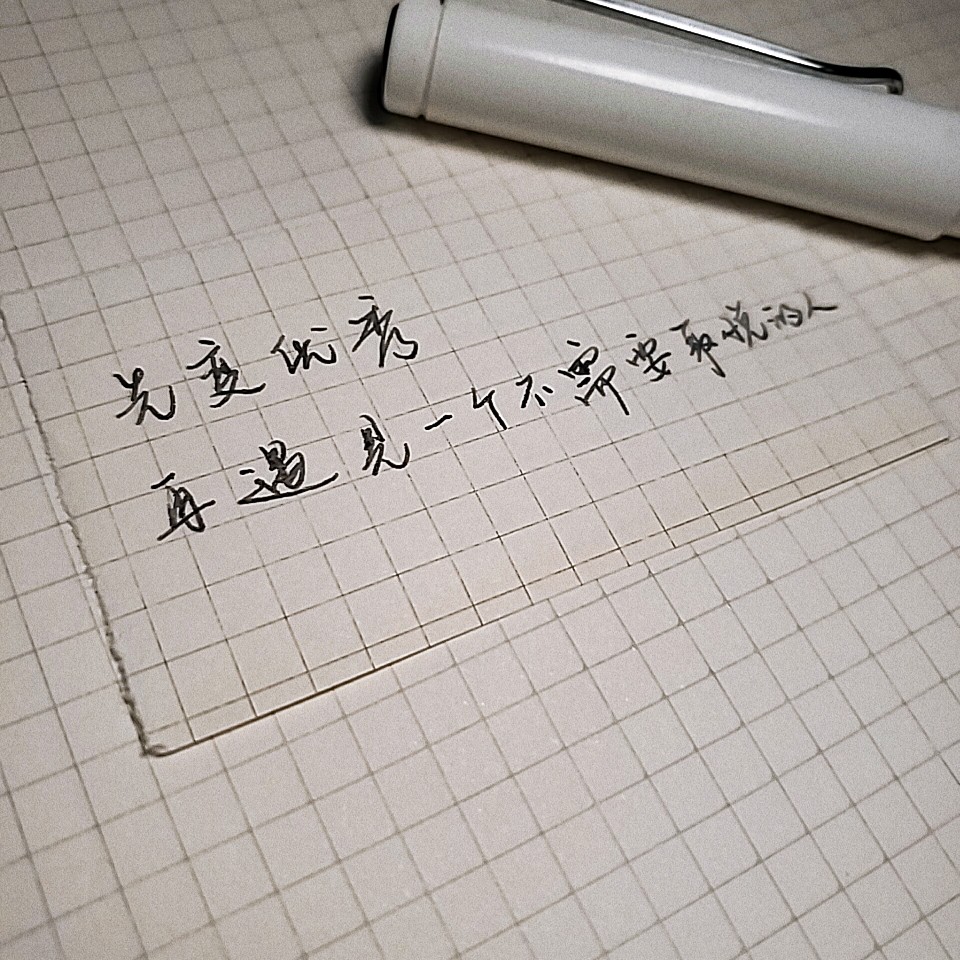 先变优秀
再遇见一个不需要取悦的人